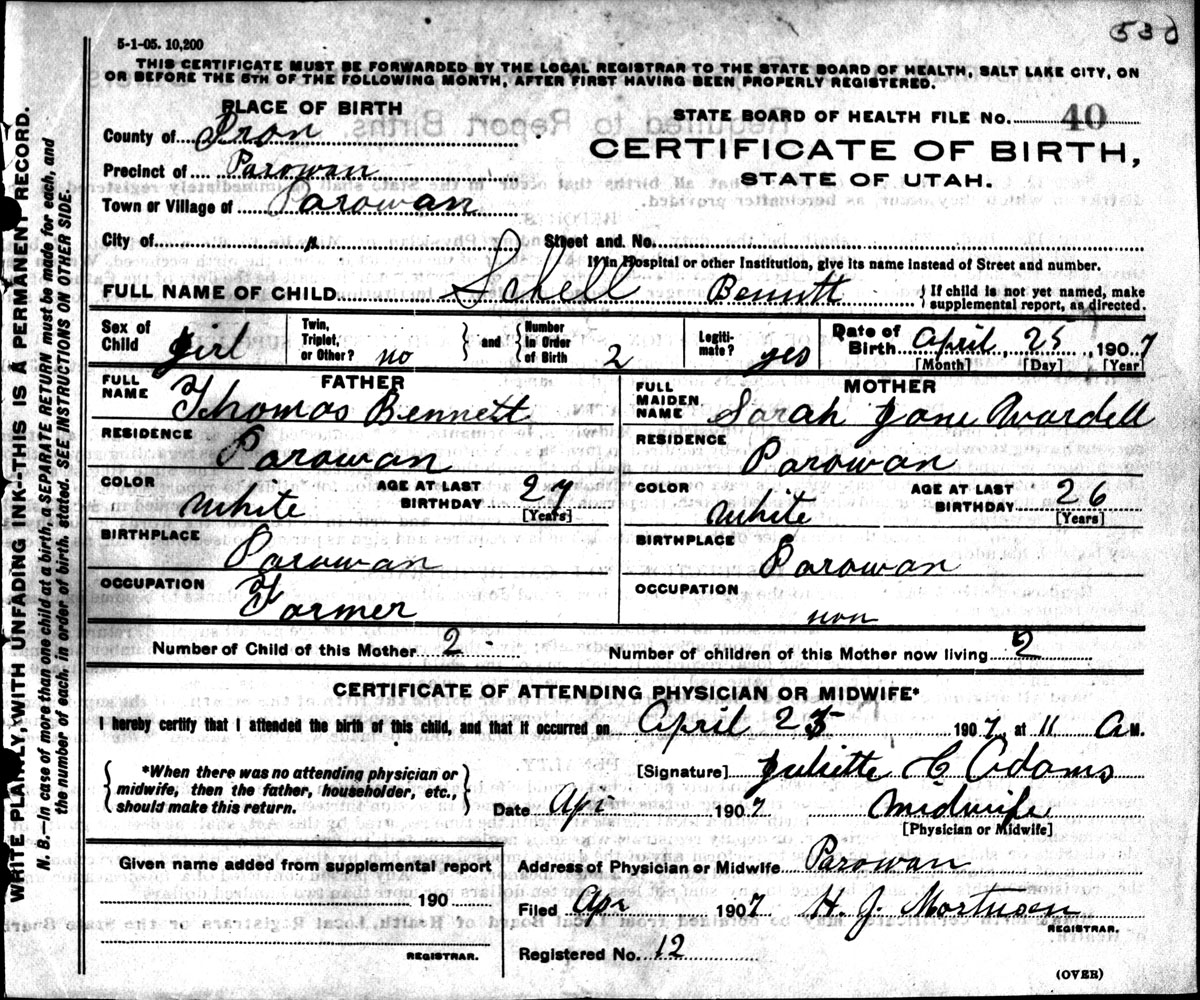 530
5-1-05. 10,200
THIS CERTIFICATE MUST BE FORWARDED BY THE LOCAL REGISTRAR TO THE STATE BOARD OF HEALTH, SALT LAKE CITY, ON
OR BEFORE THE 5TH OF THE FOLLOWING MONTH, AFTER FIRST HAVING BEEN PROPERLY REGISTERED.
PLACE OF BIRTH
County of Iron
Precinct of Parowan
Town or Village of Parowan
City of "
STATE BOARD OF HEALTH FILE NO. 40
CERTIFICATE OF BIRTH,
STATE OF UTAH.
Street and No.
If in Hospital or other Institution, give its name instead of Street and number.
FULL NAME OF CHILD Schell Bennett { If child is not yet named, make
supplemental report, as directed.
Sex of Child girl
Twin, Triplet, or Other? no } and { Number in Order of Birth 2
Legitimate? yes
Date of Birth April, 25, 1907
[Month] [Day] [Year]
FATHER
FULL NAME Thomas Bennett
RESIDENCE Parowan
COLOR White AGE AT LAST BIRTHDAY 27
[Years]
BIRTHPLACE Parowan
OCCUPATION Farmer
MOTHER
FULL MAIDEN NAME Sarah Jane Wardell
RESIDENCE Parowan
COLOR White AGE AT LAST BIRTHDAY 26
[Years]
BIRTHPLACE Parowan
OCCUPATION non
Number of Child of this Mother 2 Number of children of this Mother now living 2
CERTIFICATE OF ATTENDING PHYSICIAN OR MIDWIFE*
I hereby certify that I attended the birth of this child, and that it occurred on April 25 1907, at 11 A M.
{ *When there was no attending physician or
midwife, then the father, householder, etc.,
should make this return. }
[Signature] Juliette C Adams
Date Apr 1907 Midwife
[Physician or Midwife]
Given name added from supplemental report
190
REGISTRAR.
Address of Physician or Midwife Parowan
Filed Apr 1907 H. J. Mortensen
REGISTRAR.
Registered No. 12
(OVER)
WRITE PLAINLY, WITH UNFADING INK--THIS IS A PERMANENT RECORD.
N. B.—In case of more than one child at a birth, a SEPARATE RETURN must be made for each, and
the number of each, in order of birth, stated. SEE INSTRUCTIONS ON OTHER SIDE.